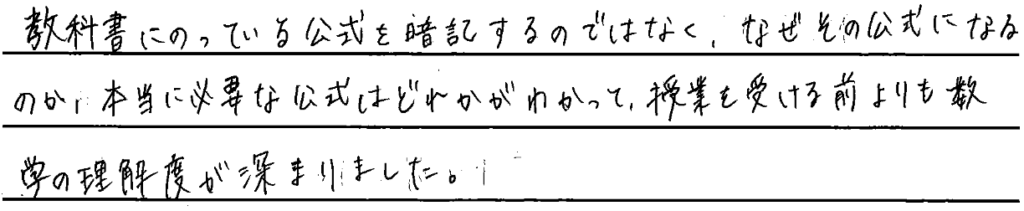 教科書にのっている公式を暗記するのではなく、なぜその公式になる
のか、本当に必要な公式はどれかがわかって、授業を受ける前よりも数
学の理解度が深まりました。